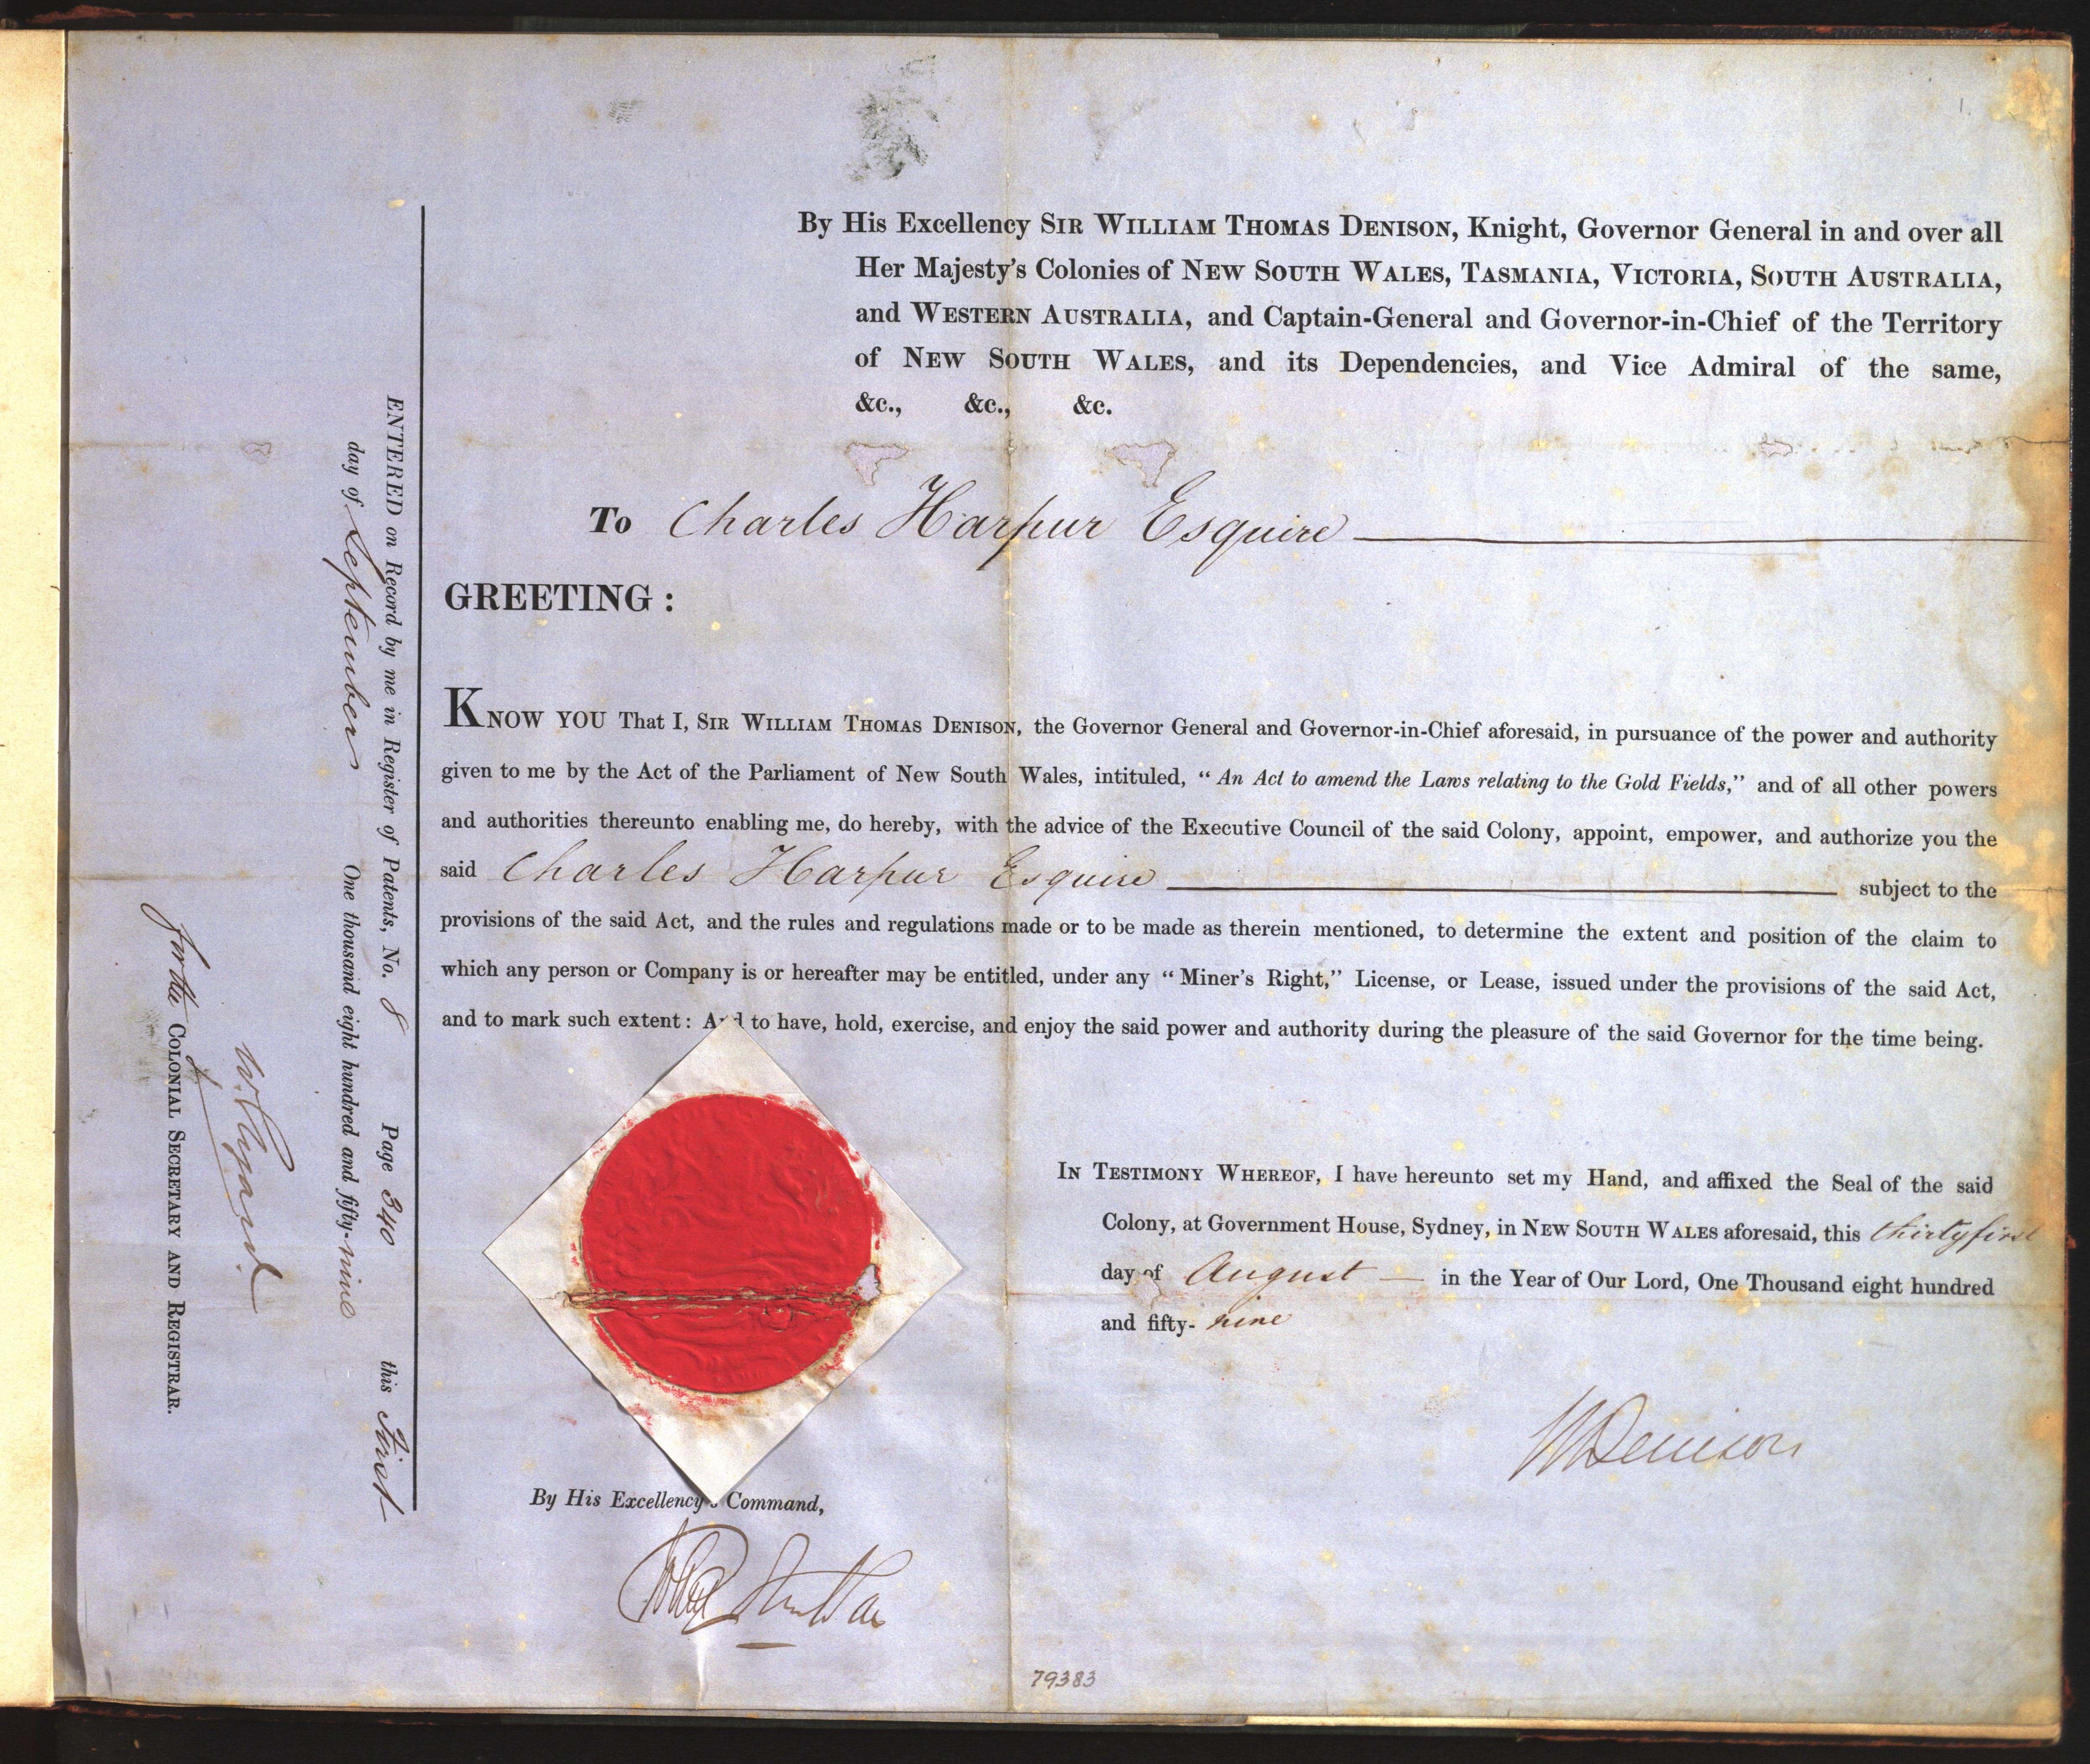 By His Excellency SIR WILLIAM THOMAS DENISON, Knight, Governor General in and over all
Her Majesty's Colonies of NEW SOUTH WALES, TASMANIA, VICTORIA, SOUTH AUSTRALIA,
and WESTERN AUSTRALIA, and Captain-General and Governor-in-Chief of the Territory
of NEW SOUTH WALES, and its Dependencies, and Vice Admiral of the same,
&c., &c., &c.
To Charles Harpur Esquire
GREETING :
KNOW YOU That I, SIR WILLIAM THOMAS DENISON, the Governor General and Governor-in-Chief aforesaid, in pursuance of the power and authority
given to me by the Act of the Parliament of New South Wales, intituled, “An Act to amend the Laws relating to the Gold Fields,” and of all other powers
and authorities thereunto enabling me, do hereby, with the advice of the Executive Council of the said Colony, appoint, empower, and authorize you the
said Charles Harpur Esquire subject to the
provisions of the said Act, and the rules and regulations made or to be made as therein mentioned, to determine the extent and position of the claim to
which any person or Company is or hereafter may be entitled, under any “Miner's Right,” License, or Lease, issued under the provisions of the said Act,
and to mark such extent: And to have, hold, exercise, and enjoy the said power and authority during the pleasure of the said Governor for the time being.
IN TESTIMONY WHEREOF, I have hereunto set my Hand, and affixed the Seal of the said
Colony, at Government House, Sydney, in NEW SOUTH WALES aforesaid, this thirty first
day of August — in the Year of Our Lord, One Thousand eight hundred
and fifty- nine
WDenison
By His Excellency's Command,
79383
ENTERED on Record by me in Register of Patents, No. 8 Page 340 this First
day of September One thousand eight hundred and fifty-nine
For the COLONIAL SECRETARY AND REGISTRAR.